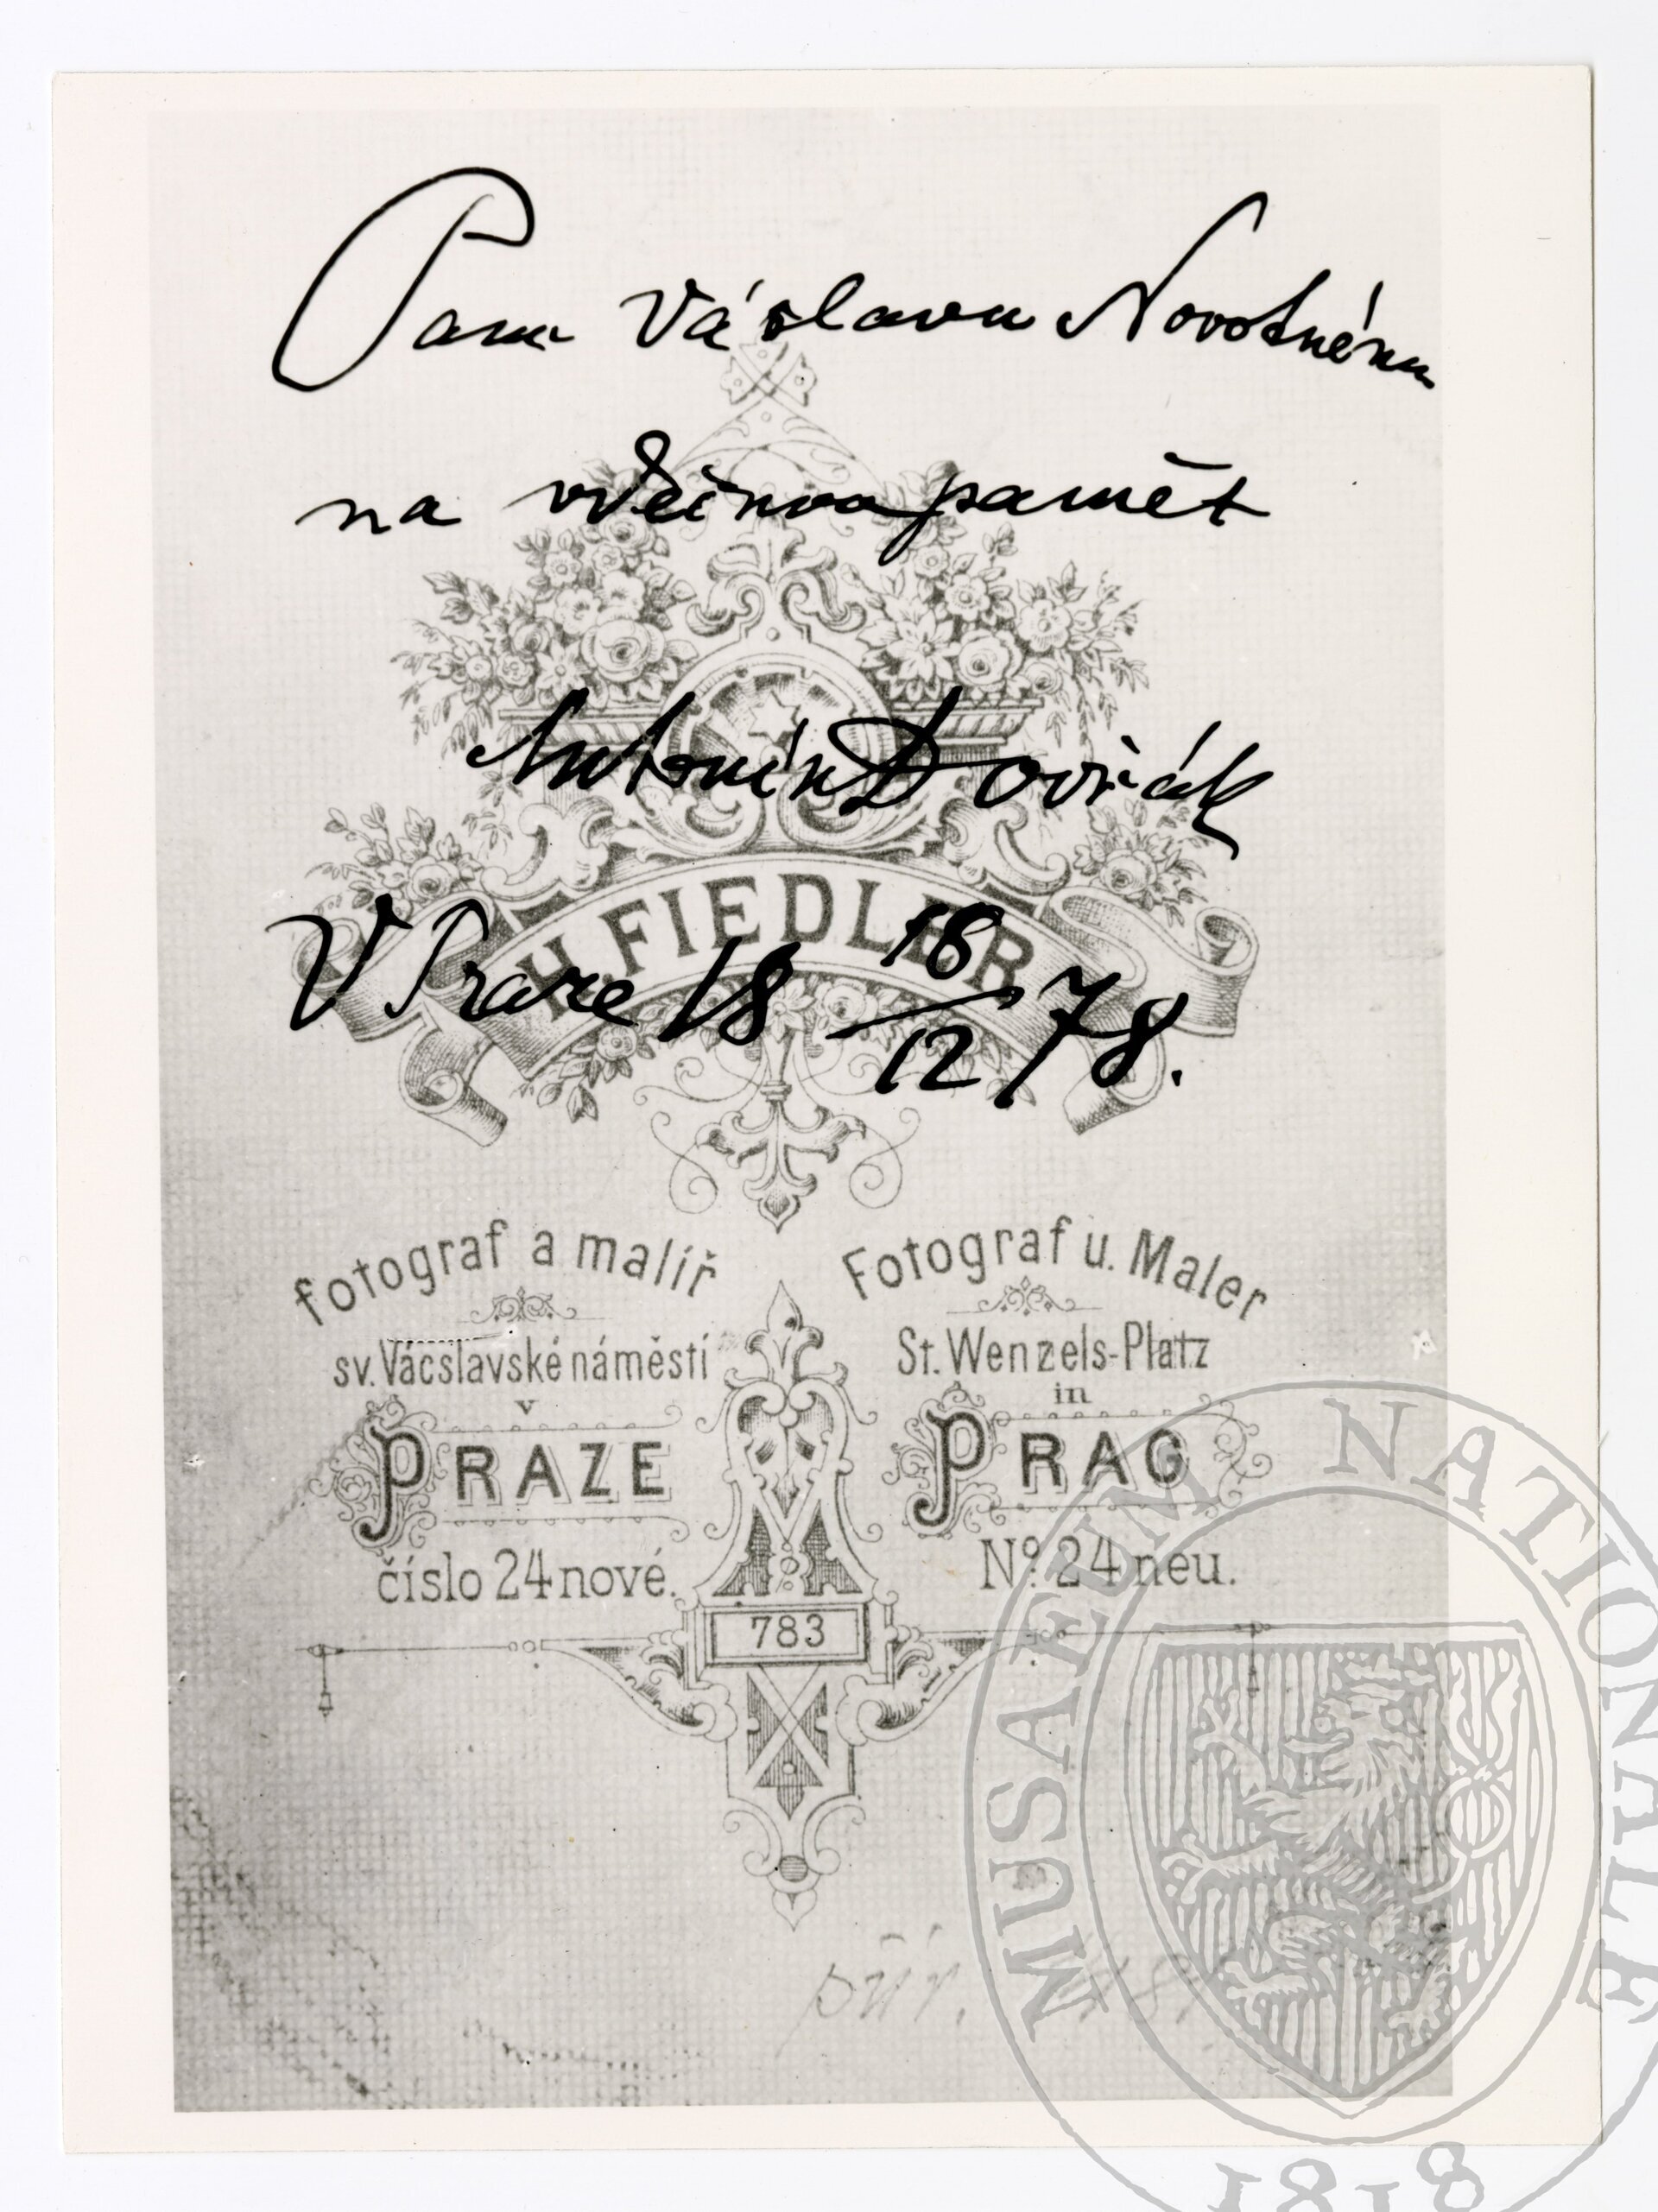 Panu Váslavu Novotnému
na vděčnou pamět
Antonín Dvořák
H. FIEDLER
V Praze 18 18/12 78.
fotograf a malíř
sv. Vácslavské náměstí
v
PRAZE
číslo 24 nové.
Fotograf u. Maler
St. Wenzels-Platz
in
PRAG
No. 24 neu.
783
přír.
MUSAEUM NATIONALE
1818